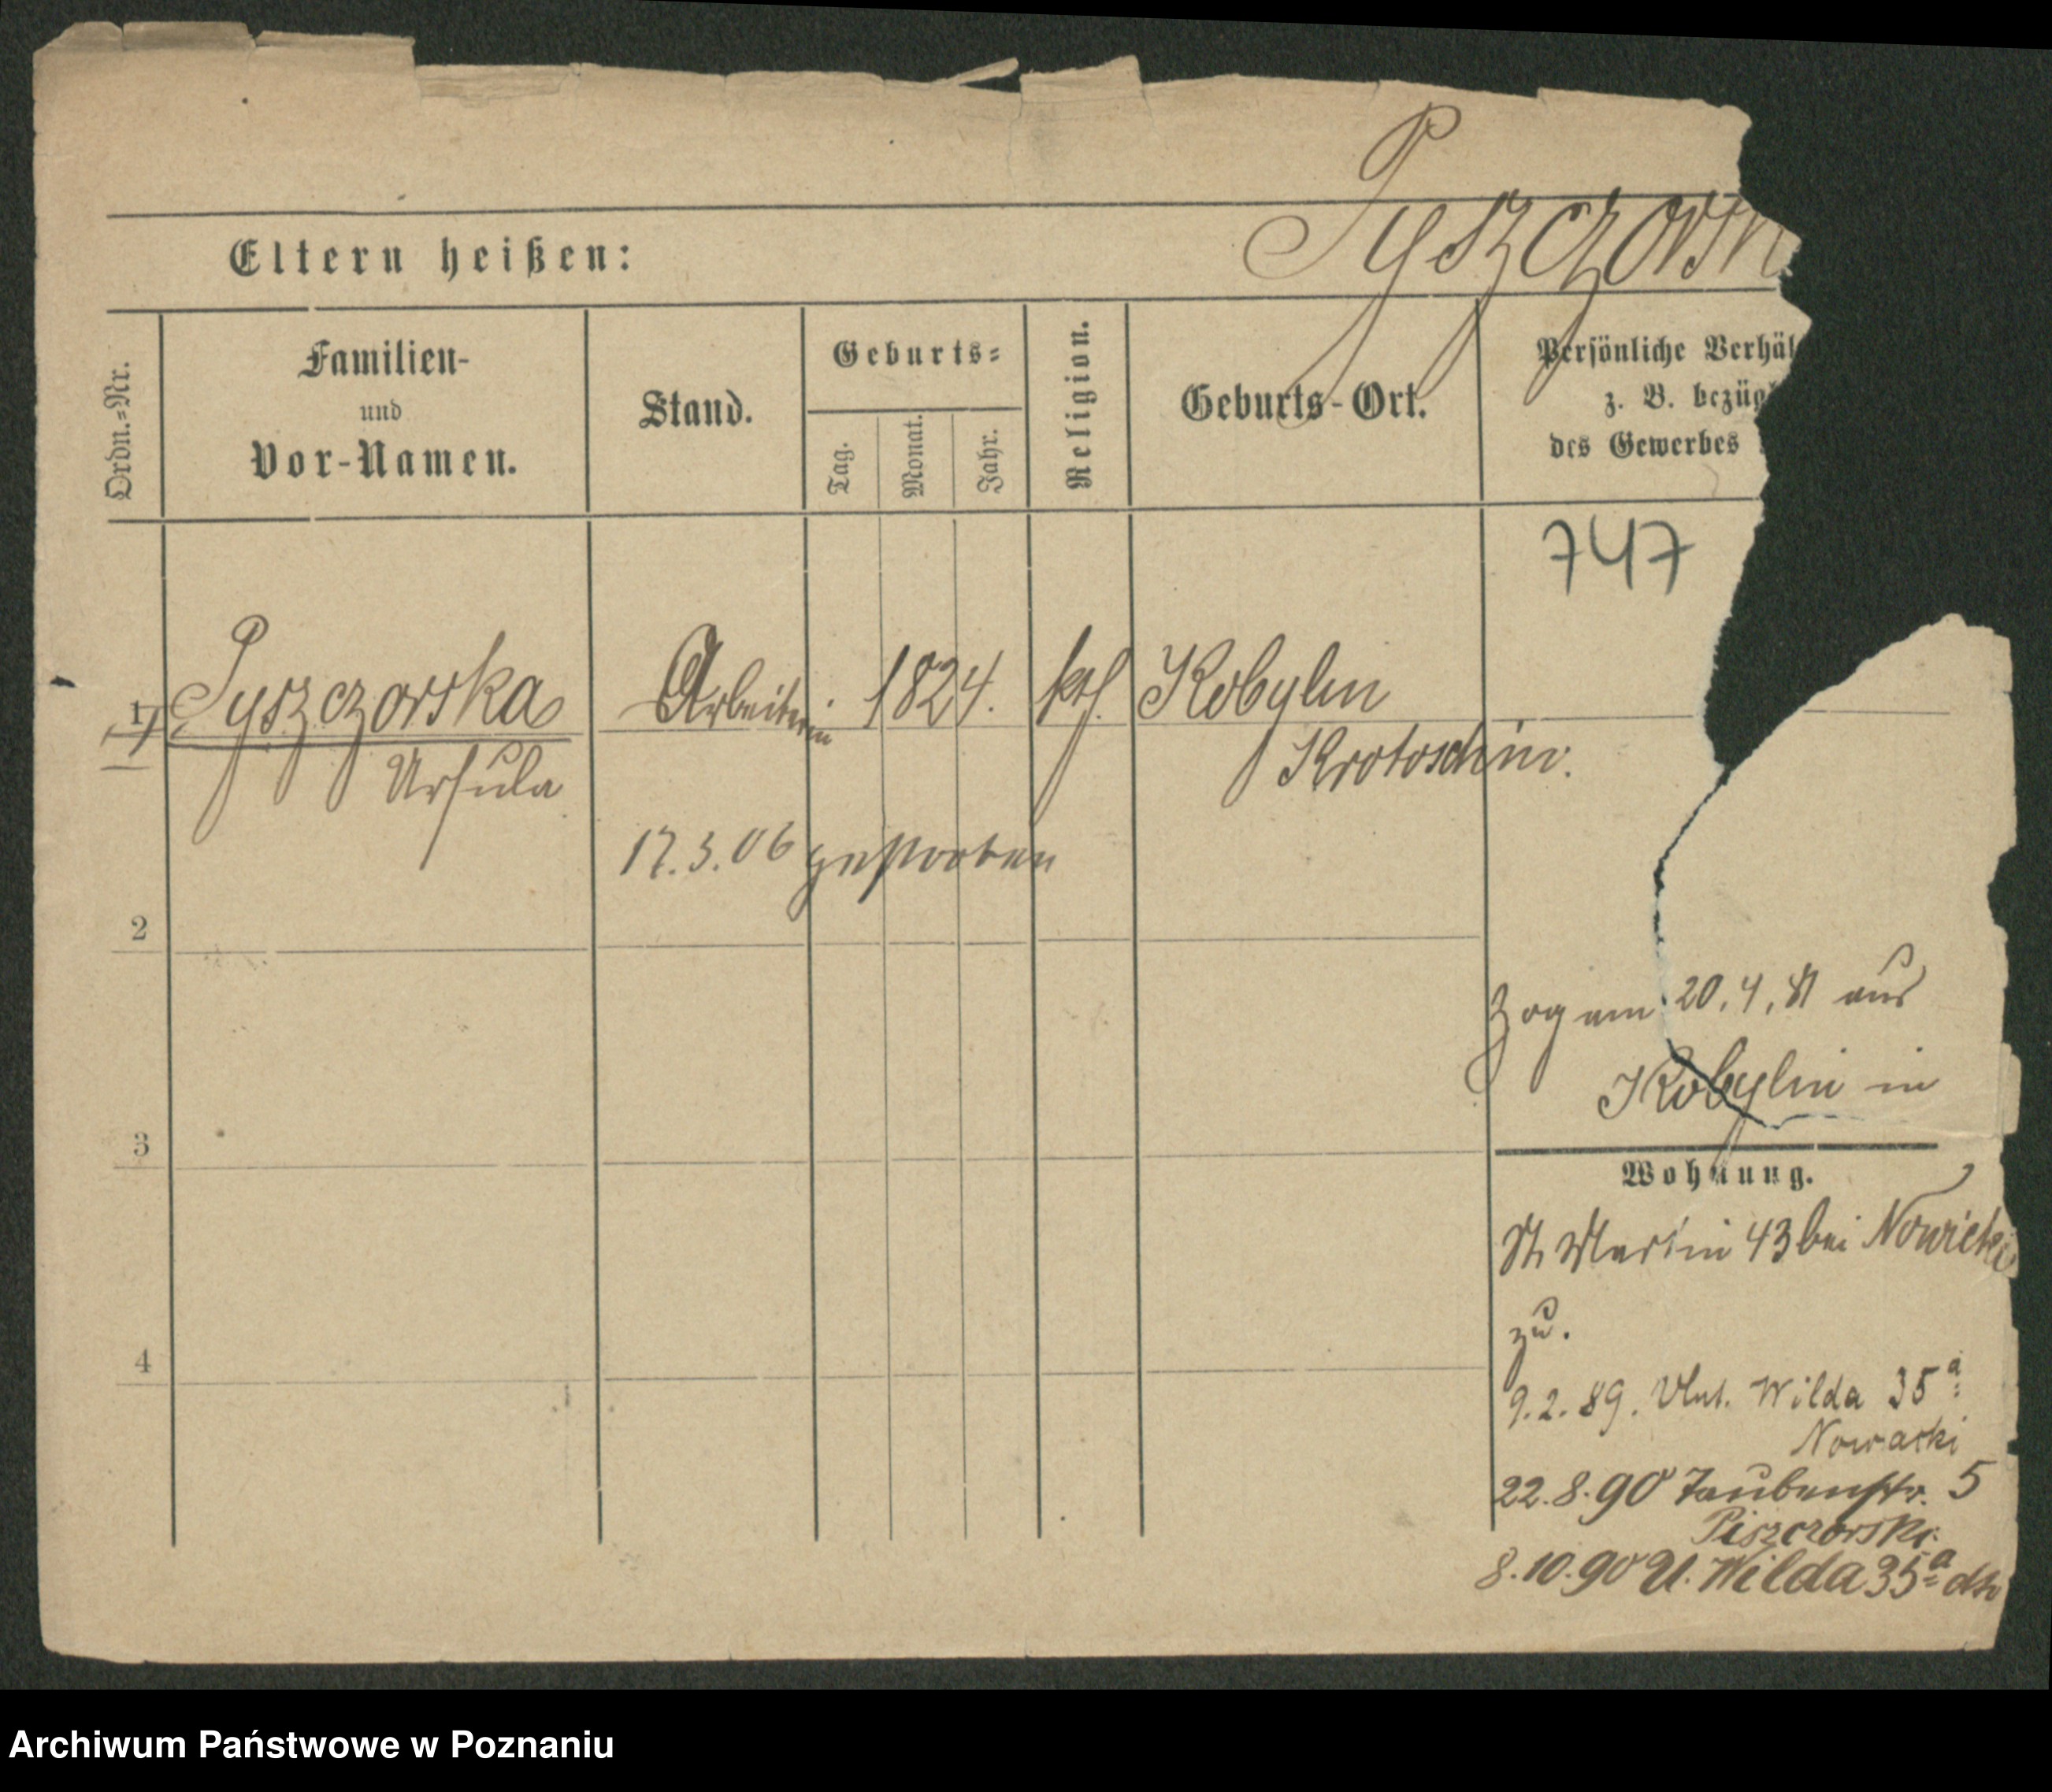 Pyszczorsk
Eltern heißen:
Ordn.=Nr.
Familien-
und
Vor-Namen.
Stand.
Geburts=
Tag.
Monat.
Jahr.
Religion.
Geburts-Ort.
Persönliche Verhäl
z. B. bezügl
des Gewerbes
747
1 Pyszczorska Arbeiterin 1824. kth. Kobylin
Ursula Krotoschin.
17.3.06 gestorben
2
Zog am 20.4.81 aus
Kobylin in
3
Wohnung.
St. Martin 43 bei Nowicki
zu.
4
9.2.89. Unt. Wilda 35a
Nowacki
22.8.90 Taubenstr. 5
Piszczorski
8.10.90 U. Wilda 35a
Archiwum Państwowe w Poznaniu